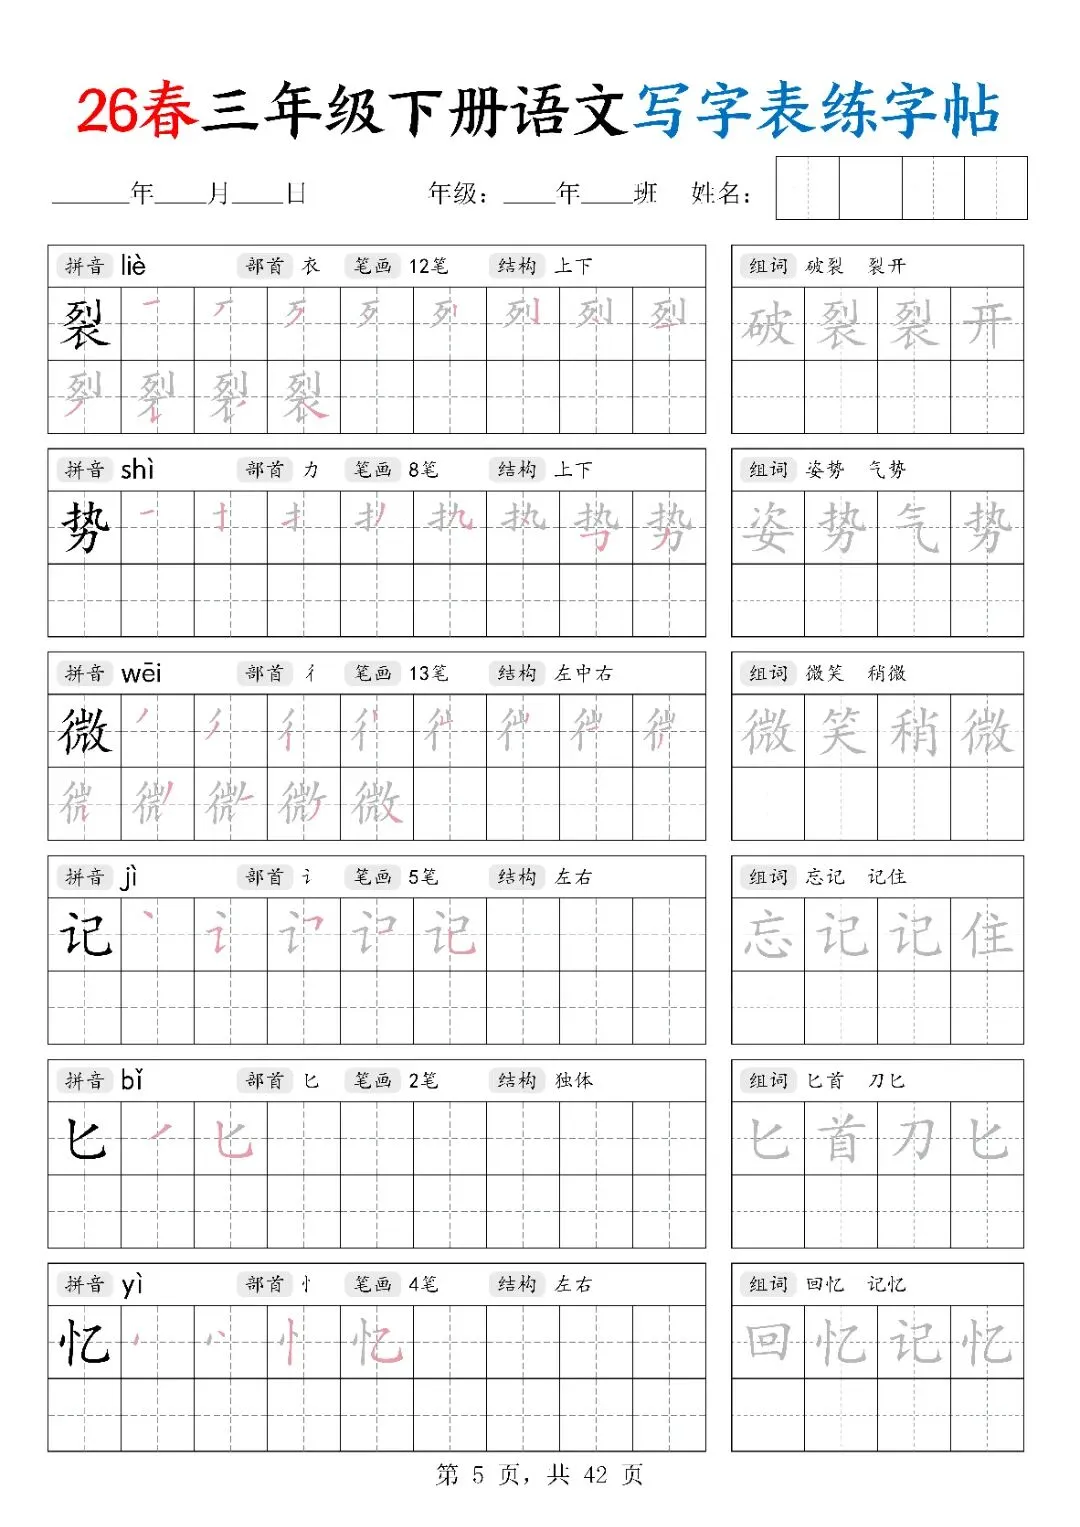 26春三年级下册语文写字表练字帖
____年____月____日 年级：____年____班 姓名：
拼音 liè 部首 衣 笔画 12笔 结构 上下
组词 破裂 裂开
裂
破裂裂开
拼音 shì 部首 力 笔画 8笔 结构 上下
组词 姿势 气势
势
姿势气势
拼音 wēi 部首 彳 笔画 13笔 结构 左中右
组词 微笑 稍微
微
微笑稍微
拼音 jì 部首 讠 笔画 5笔 结构 左右
组词 忘记 记住
记
忘记记住
拼音 bǐ 部首 匕 笔画 2笔 结构 独体
组词 匕首 刀匕
匕
匕首刀匕
拼音 yì 部首 忄 笔画 4笔 结构 左右
组词 回忆 记忆
忆
回忆记忆
第 5 页，共 42 页